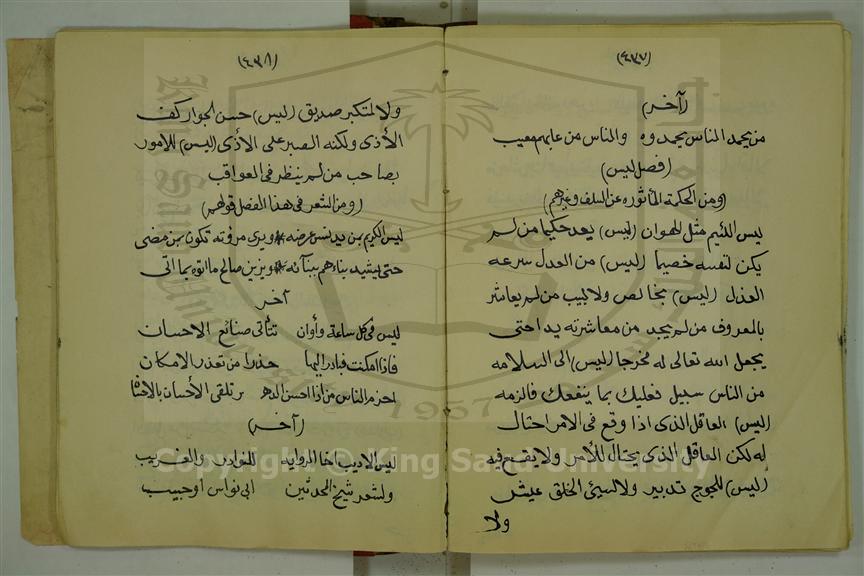 (٤٣٧)
(آخر)
من يحمد الناس يحمدوه والناس من عابهم معيب
(فصل ليس)
(ومن الحكمة المأثوره عن السلف وغيرهم)
ليس للئيم مثل الهوان (ليس) يعد حكيما من لم
يكن لنفسه خصيما (ليس) من العدل سرعه
العذل (ليس) بخالص ولا لبيب من لم يعاشر
بالمعروف من لم يجد من معاشرته بدا حتى
يجعل الله تعالى له مخرجا (ليس) الى السلامه
من الناس سبيل فعليك بما ينفعك فالزمه
(ليس) العاقل الذى اذا وقع فى الامر احتال
له لكن العاقل الذى يحتال للأمر ولا يقع فيه
(ليس) للجوج تدبير ولا لسيئ الخلق عيش
ولا
(٤٣٨)
ولا لمتكبر صديق (ليس) حسن الجوار كف
الأذى ولكنه الصبر على الأذى (ليس) للامور
بصاحب من لم ينظر فى العواقب
(ومن الشعر فى هذا الفصل قولهم)
ليس الكريم بمن يدنس عرضه ويرى مروته تكون بمن مضى
حتى يشيد بناءهم ببنائه ويزين صالح ما اتوه بما اتى
آخر
ليس فى كل ساعة وأوان تتأتى صنائع الاحسان
فاذا امكنت فبادر اليها حذرا من تعذر الامكان
احزم الناس من اذا احسن الدهر تلقى الأحسان بالاحسا
(آخر)
ليس الاديب اخا الروايه للنوادر والغريب
ولشعر شيخ المحدثين ابى نواس او حبيب
Copyright © King Saud University
1957